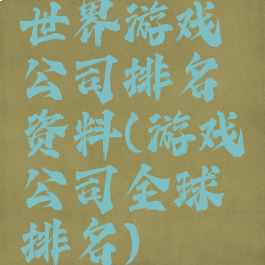 世界游戏
公司排名
资料(游戏
公司全球
排名)